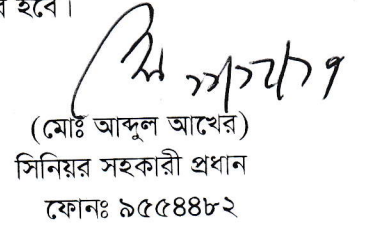 হবে।
১১/১২/১৭
(মোঃ আব্দুল আখের)
সিনিয়র সহকারী প্রধান
ফোনঃ ৯৫৫৪৪৮২